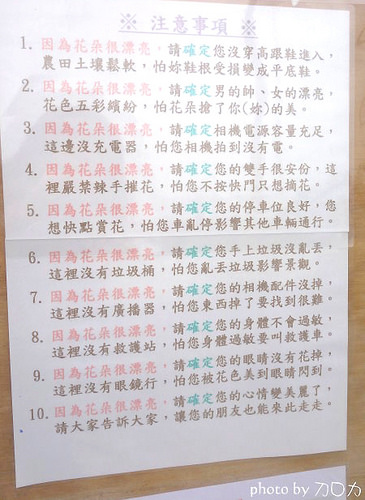 ※ 注意事項 ※
1. 因為花朵很漂亮，請確定您沒穿高跟鞋進入，
農田土壤鬆軟，怕妳鞋根受損變成平底鞋。
2. 因為花朵很漂亮，請確定男的帥、女的漂亮，
花色五彩繽紛，怕花朵搶了你(妳)的美。
3. 因為花朵很漂亮，請確定相機電源容量充足，
這邊沒充電器，怕您相機拍到沒有電。
4. 因為花朵很漂亮，請確定您的雙手很安份，這
裡嚴禁辣手摧花，怕您不按快門只想摘花。
5. 因為花朵很漂亮，請確定您的停車位良好，您
想快點賞花，怕您車亂停影響其他車輛通行。
6. 因為花朵很漂亮，請確定您手上垃圾沒亂丟，
這裡沒有垃圾桶，怕您亂丟垃圾影響景觀。
7. 因為花朵很漂亮，請確定您的相機配件沒掉，
這裡沒有廣播器，怕您東西掉了要找到很難。
8. 因為花朵很漂亮，請確定您的身體不會過敏，
這裡沒有救護站，怕您身體過敏要叫救護車。
9. 因為花朵很漂亮，請確定您的眼睛沒有花掉，
這裡沒有眼鏡行，怕您被花色美到眼睛閃到。
10. 因為花朵很漂亮，請確定您的心情變美麗了，
請大家告訴大家，讓您的朋友也能來此走走。
photo by 刀口力